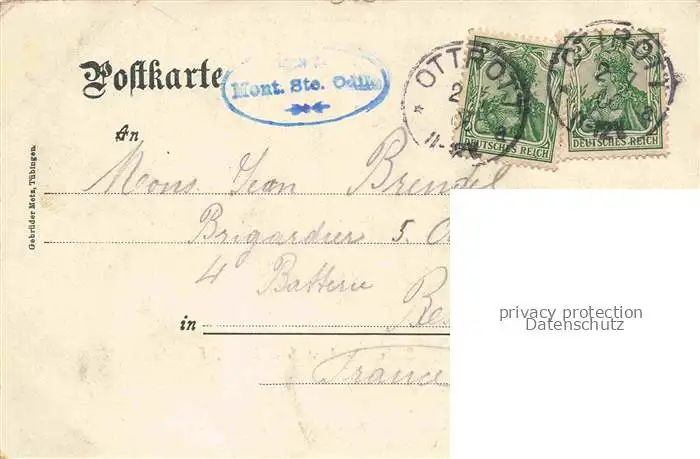 Postkarte
Mont. Ste. Odile
OTTROTT
OTTROTT
DEUTSCHES REICH
DEUTSCHES REICH
An
Mons Jean Brendel
Brigardier 5.
4 Batterie
in
France
Gebrüder Metz, Tübingen
privacy protection
Datenschutz